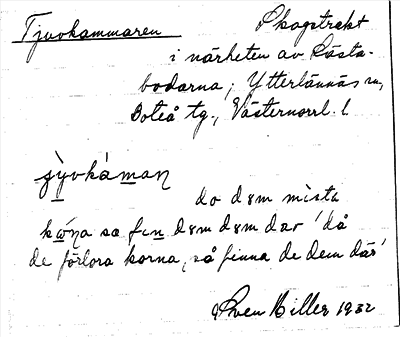 Tjuvkammaren Skogstrakt
i närheten av Rästa-
bodarna, Ytterlännäs sn,
Boteå tg., Västernorrl. l.
do dem mista
so fin dem dem dar 'då
de förlora korna, så finna de dem där'
Sven Hiller 1932